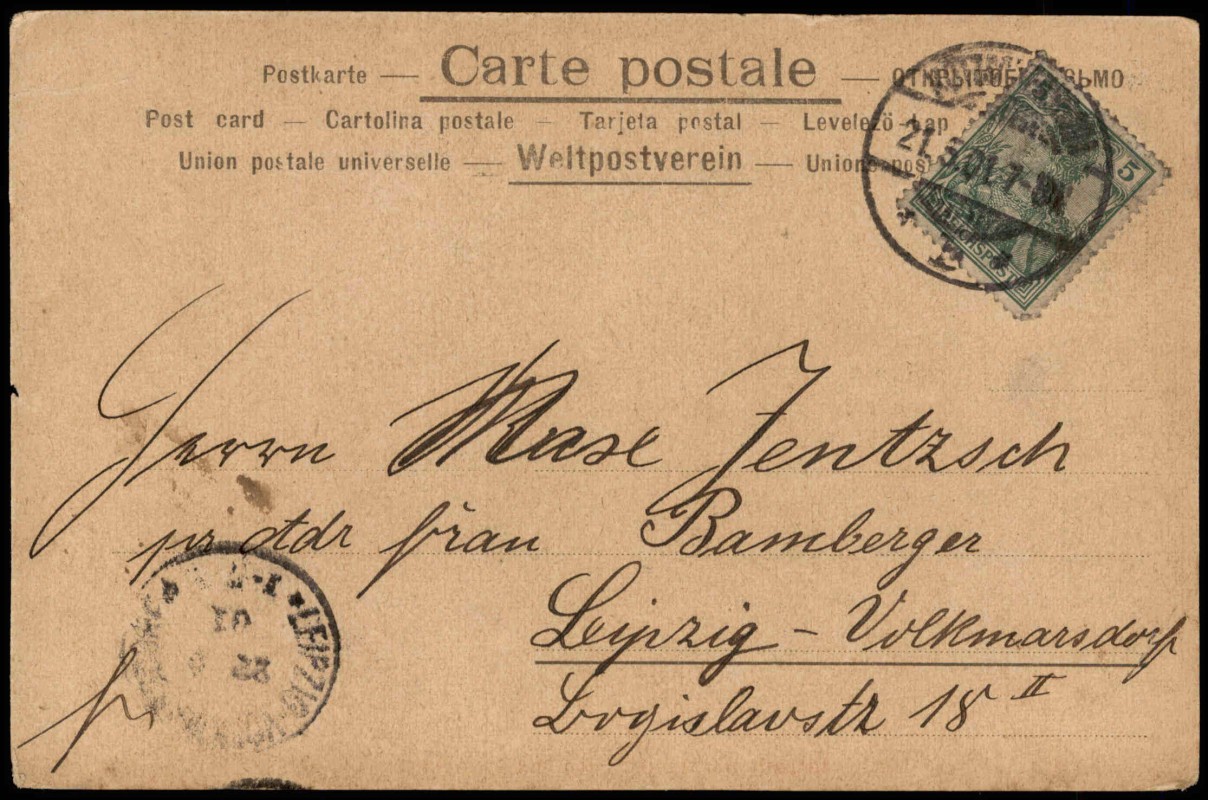 Postkarte — Carte postale — ОТКРЫТОЕ ПИСЬМО
Post card — Cartolina postale — Tarjeta postal — Levelező-Lap
Union postale universelle — Weltpostverein — Unione post
5
5
REICHSPOST
21.9.01.7-8N.
Herrn Max Jentzsch
pr Adr Frau Bamberger
Leipzig - Volkmarsdorf
Bogislavstr 18 II
fr
LEIPZIG
22
01